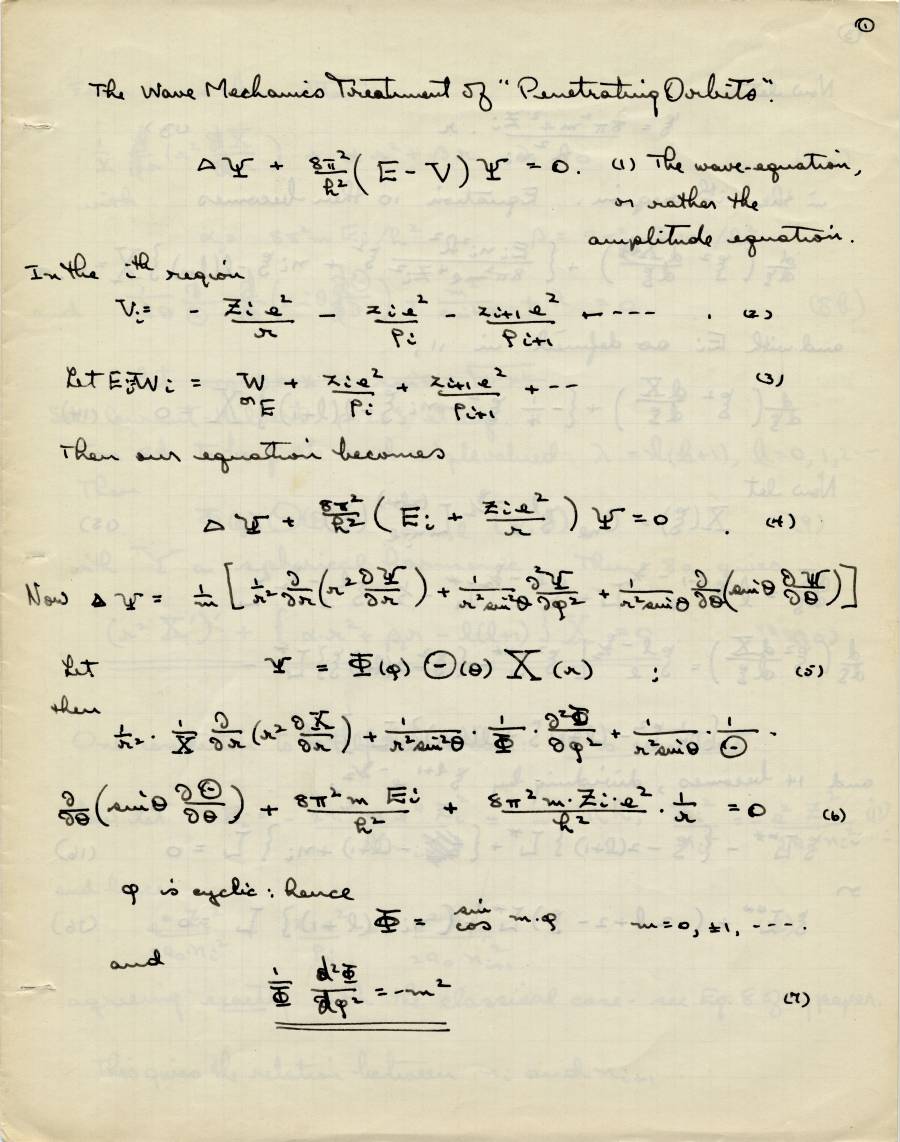 ①
The Wave Mechanics Treatment of "Penetrating Orbits".
Δ Ψ + 8π²/h² ( E - V ) Ψ = 0. (1) The wave-equation,
or rather the
amplitude equation.
In the iᵗʰ region
Vᵢ = - Zᵢe²/r - zᵢe²/ρᵢ - zᵢ₊₁e²/ρᵢ₊₁ - ---- . (2)
Let Eᵢ=Wᵢ = W + zᵢe²/ρᵢ + zᵢ₊₁e²/ρᵢ₊₁ + -- (3)
or E
Then our equation becomes
Δ Ψ + 8π²/h² ( Eᵢ + Zᵢe²/r ) Ψ = 0 . (4)
Now Δ Ψ = 1/m [ 1/r² ∂/∂r (r² ∂Ψ/∂r) + 1/r²sin²θ ∂²Ψ/∂φ² + 1/r²sinθ ∂/∂θ (sinθ ∂Ψ/∂θ) ]
Let Ψ = Φ(φ) Θ(θ) X(r) ; (5)
then
1/r² · 1/X ∂/∂r (r² ∂X/∂r) + 1/r²sin²θ · 1/Φ · ∂²Φ/∂φ² + 1/r²sinθ · 1/Θ ·
∂/∂θ (sinθ ∂Θ/∂θ) + 8π²m Eᵢ/h² + 8π²m·Zᵢ·e²/h² · 1/r = 0 (6)
φ is cyclic : hence
Φ = sin cos m·φ m = 0, ±1, ----.
and
1/Φ d²Φ/dφ² = -m² (7)